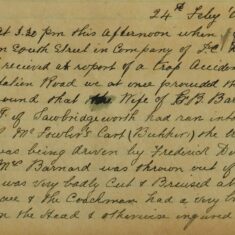 24th Feby
At 3.20 pm this afternoon when
on South Street in Company of P.C
received a report of a Trap Accident
Station Road we at once proceeded th
ound that the Wife of
of Sawbridgeworth had ran into
Mr Fowler's Cart (Butcher) the
was being driven by Frederick
Mrs Barnard was thrown out of
was very badly Cut & Bruised a
& the Coachman had a very
on the Head & otherwise injured